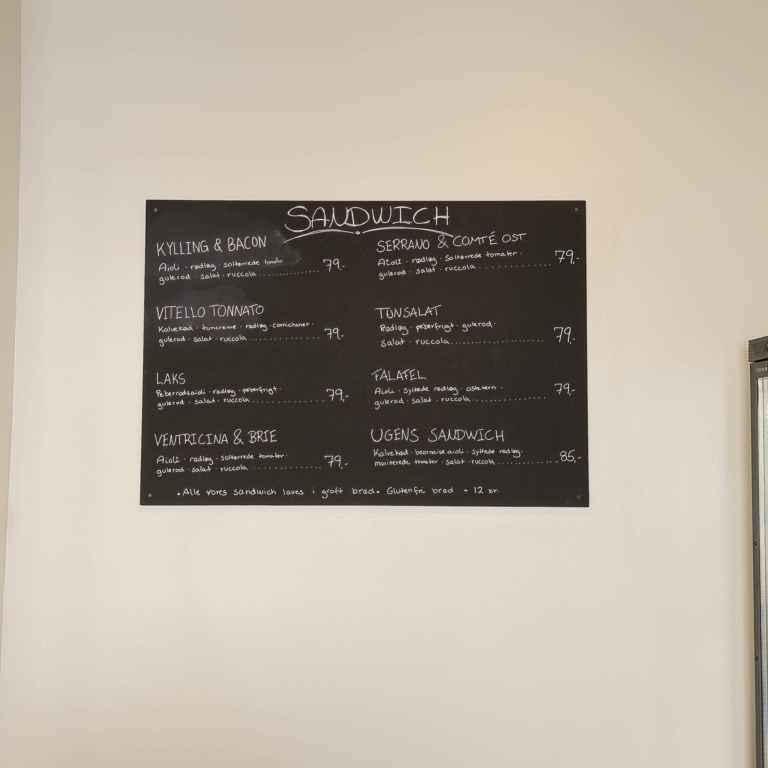 SANDWICH
KYLLING & BACON
Aioli · rødløg · soltørrede tomater
gulerod · salat · ruccola 79,-
VITELLO TONNATO
Kalvekød · tuncreme · rødløg · cornichoner ·
gulerod · salat · ruccola 79,-
LAKS
Peberrodsaioli · rødløg · peberfrugt ·
gulerod · salat · ruccola 79,-
VENTRICINA & BRIE
Aioli · rødløg · soltørrede tomater ·
gulerod · salat · ruccola 79,-
SERRANO & COMTÉ OST
Aioli · rødløg · soltørrede tomater ·
gulerod · salat · ruccola 79,-
TUNSALAT
Rødløg · peberfrugt · gulerod ·
salat · ruccola 79,-
FALAFEL
Aioli · syltede rødløg ·
gulerod · salat · ruccola 79,-
UGENS SANDWICH
Kalvekød · bearnaise aioli · syltede rødløg ·
marinerede tomater · salat · ruccola 85,-
• Alle vores sandwich laves i groft brød • Glutenfri brød + 12 kr.